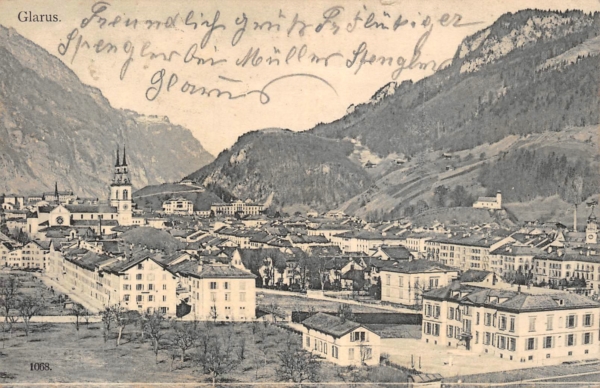 Glarus.
Freundlich grüßt Fr. Flütiger
Spengler bei Müller Spengler
Glarus
1068.